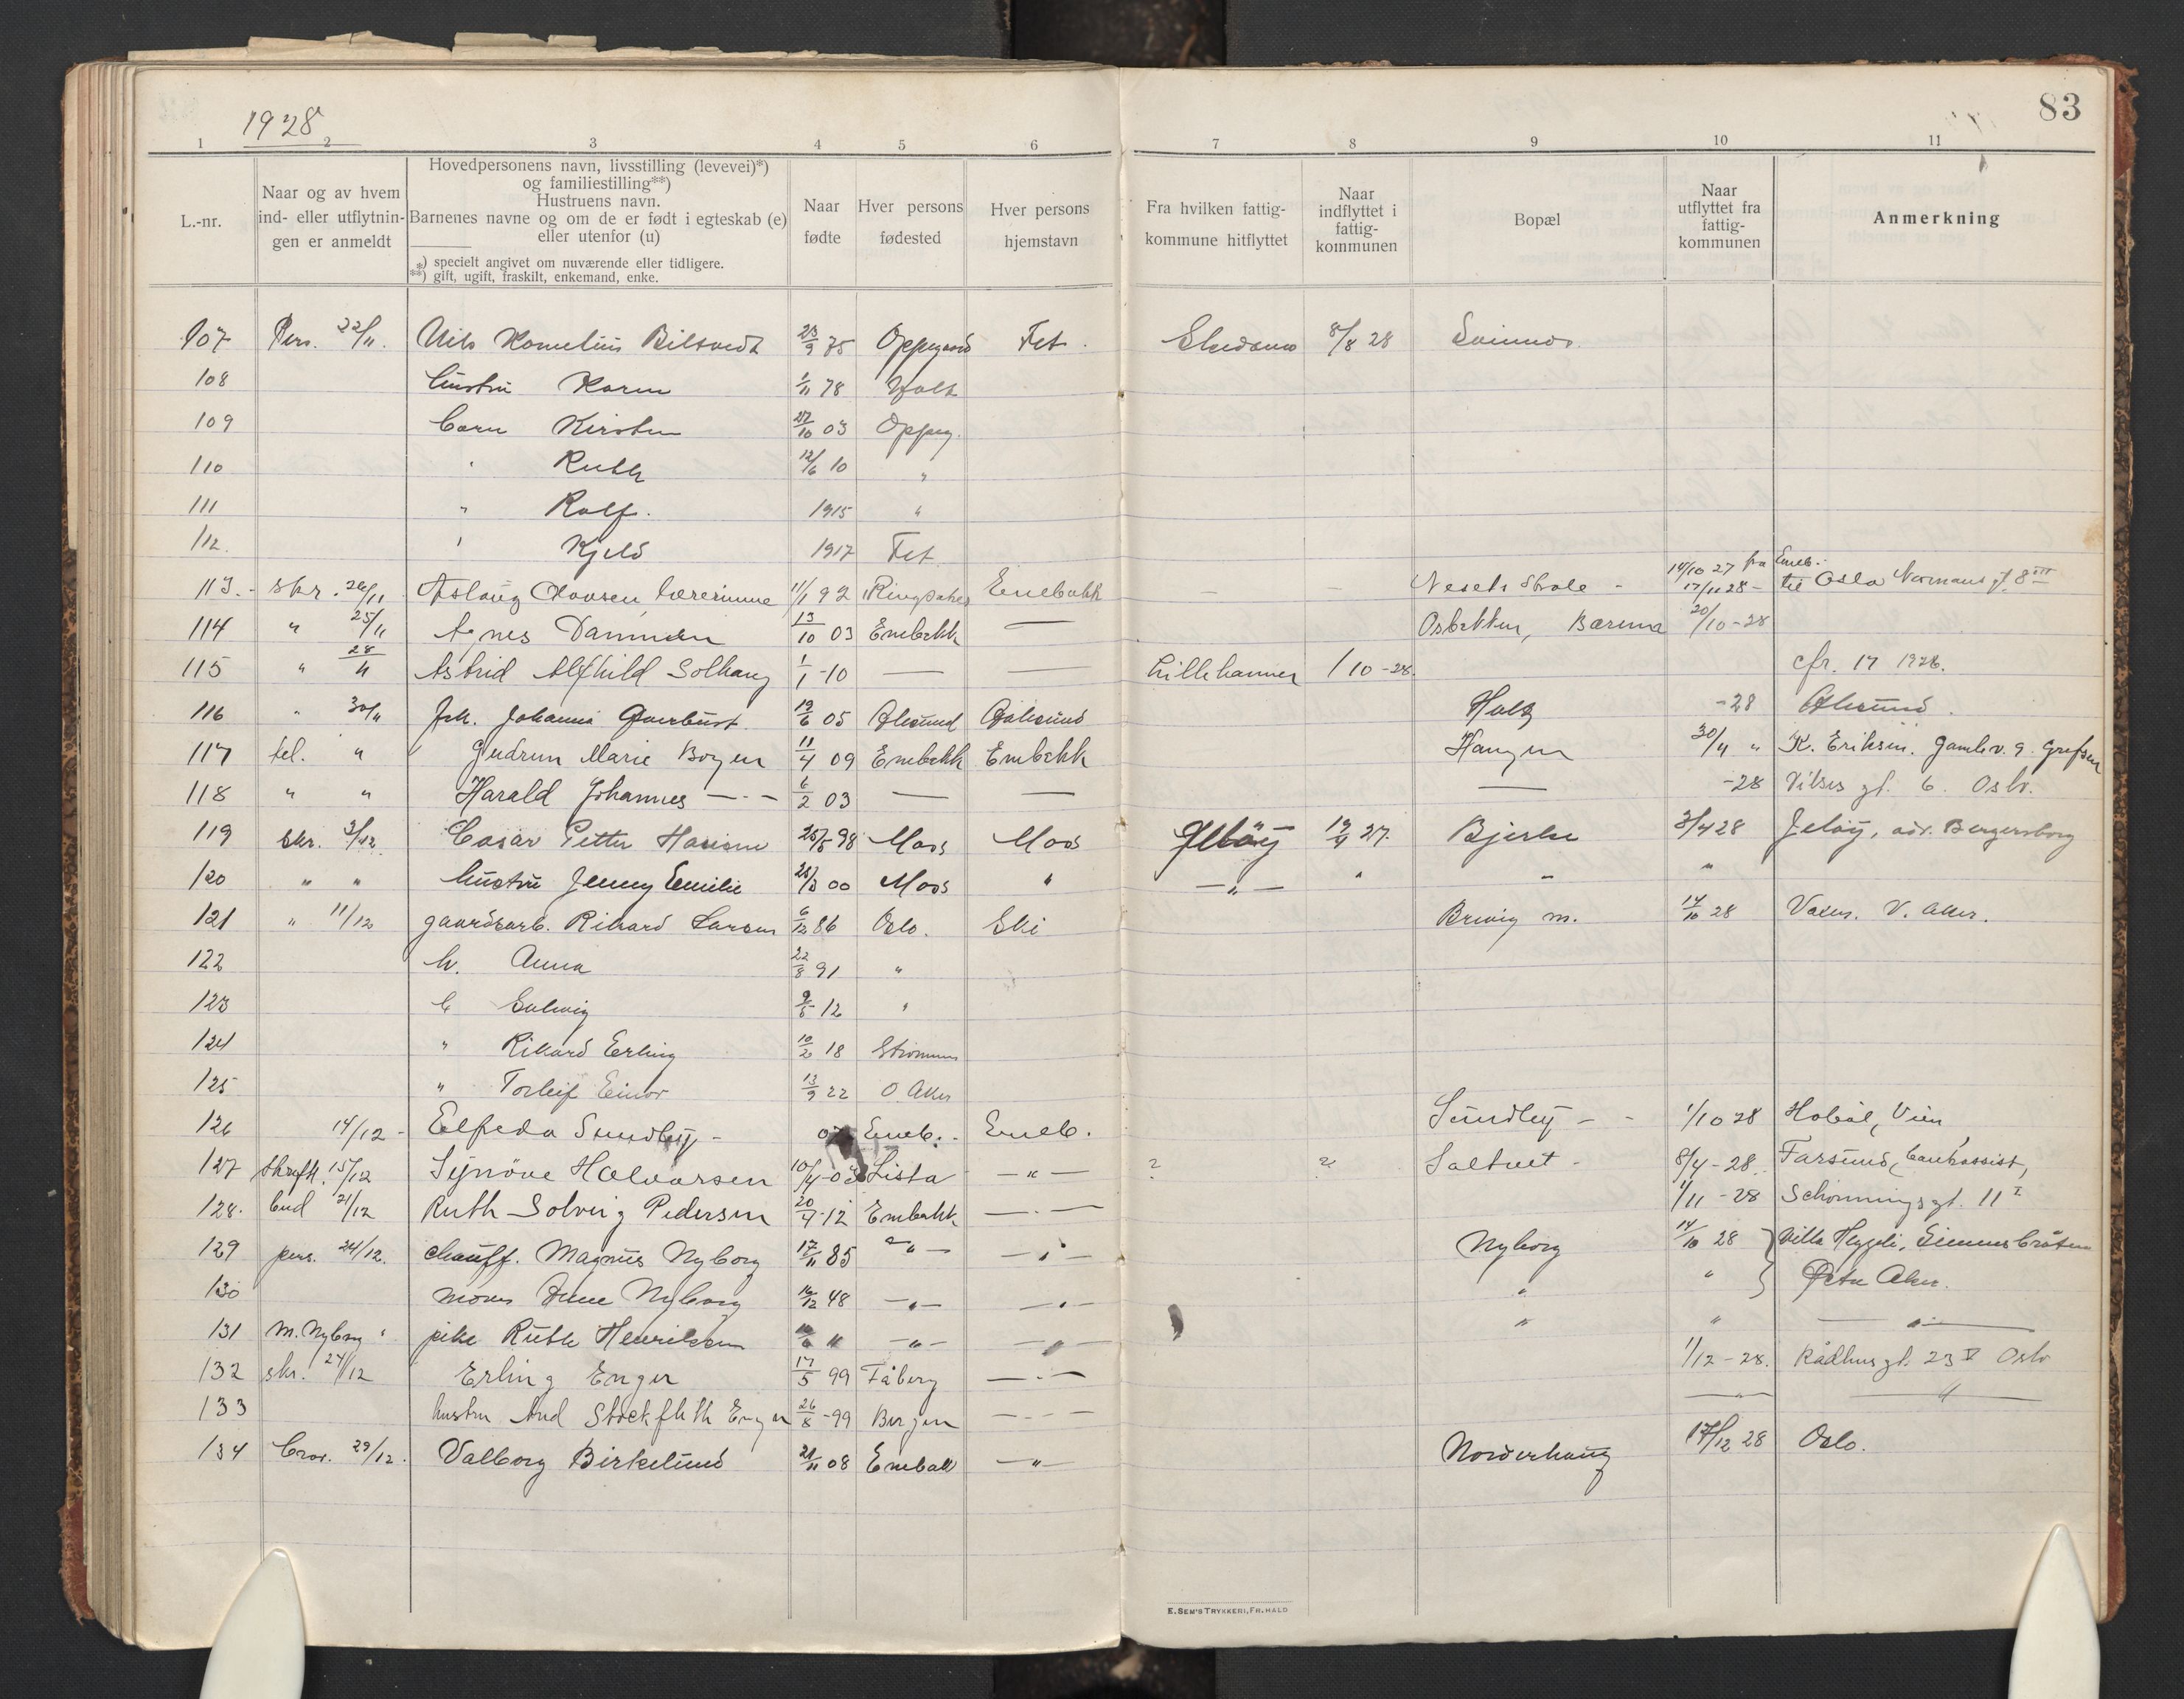 83
1928
1 2 3 4 5 6 7 8 9 10 11
L.-nr.
Naar og av hvem
ind- eller utflytnin-
gen er anmeldt
Hovedpersonens navn, livsstilling (levevei)*)
og familiestilling**)
Hustruens navn.
Barnenes navne og om de er født i egteskab (e)
eller utenfor (u)
*) specielt angivet om nuværende eller tidligere.
**) gift, ugift, fraskilt, enkemand, enke.
Naar
fødte
Hver persons
fødested
Hver persons
hjemstavn
Fra hvilken fattig-
kommune hitflyttet
Naar
indflyttet i
fattig-
kommunen
Bopæl
Naar
utflyttet fra
fattig-
kommunen
Anmerkning
107 Pers. 22/11. Nils Kornelius 23/9 75 Oppegaard Fet. 8/8 28
108 hustru Karen 1/11 78
109 barn Kirsten 27/10 03 Oppeg.
110 " Ruth 12/6 10 "
111 " Rolf. 1915 "
112. " Kjeld 1917 Fet
113. skr. 26/11 Aslaug Claussen lærerinne 11/1 92 Ringsaker Enebakk — — Nesets skole - 14/10 27 fra Eneb.
17/11 28 - til Oslo Normans gt. 8 III
114 " 25/11 Agnes Dammen 13/10 03 Enebakk — 20/10-28
115 " 28/11 Astrid Alfhild Solhaug 1/1-10 — — Lillehammer 1/10-28. cfr. 17 1928.
116 " 30/11 Frk. Johanna 19/6 05 Ålesund Ålesund -28 Ålesund.
117 tel. " Gudrun Marie Bogen 11/4 09 Enebakk Enebakk Haugen 30/11 " K. Eriksen. Gamlev. 9. Grefsen
118 " " Harald Johannes —"— 6/2 03 — — — -28 gt. 6. Oslo.
119 skr. 3/12. Petter Hansen 25/5 98 Moss Moss Jeløy 19/4 27. Bjerke 3/4 28 Jeløy, adr. Bergersborg
120 " " hustru Jenny Emilie 00 Moss " —"— " " "
121 " 11/12 gaardsarb. Rikard Larsen 6/12 86 Oslo. Ski m. 14/10 28 V. Aker.
122 h. Anna 22/8 91 "
123 b Solveig 9/5-12 "
124 " Rikard Erling 10/2 18 Strømmen
125 " Torleif Einar 13/9 22 Ø. Aker
126 14/12 - Elfrida Sundby - Eneb. - Eneb. Sundby - 1/10 28 Hobøl,
127 skriftl. 15/12 Synnöve Halvorsen Lista —"— ? ? Saltvet - 8/4-28. Farsund,
128. bud 21/12 Ruth Solveig Pedersen 20/4-12 Enebakk —"— 1/11-28 Schønningsgt. 11 I
129 pers. 24/12. chauff. Magnus Nyborg 17/11 85 —"— —"— Nyborg 14/10 28 } Villa
130 moren Nyborg 16/12 48 —"— —"— " " } Østre Aker.
131 M. Nyborg " pike Ruth Henriksen —"— —"— " " —"—
132 skr. 27/12 Erling Enger 17/5 99 Fåberg —"— 1/12-28. Rådhusgt. 23 V Oslo
133 hustru Aud Stockfleth Enger 26/8-99 Bergen —"— —"— —"—
134 29/12. Valborg Birkelund 08 Enebakk —"— Norderhaug 17/12 28 Oslo.
E. SEM'S TRYKKERI, FR.HALD